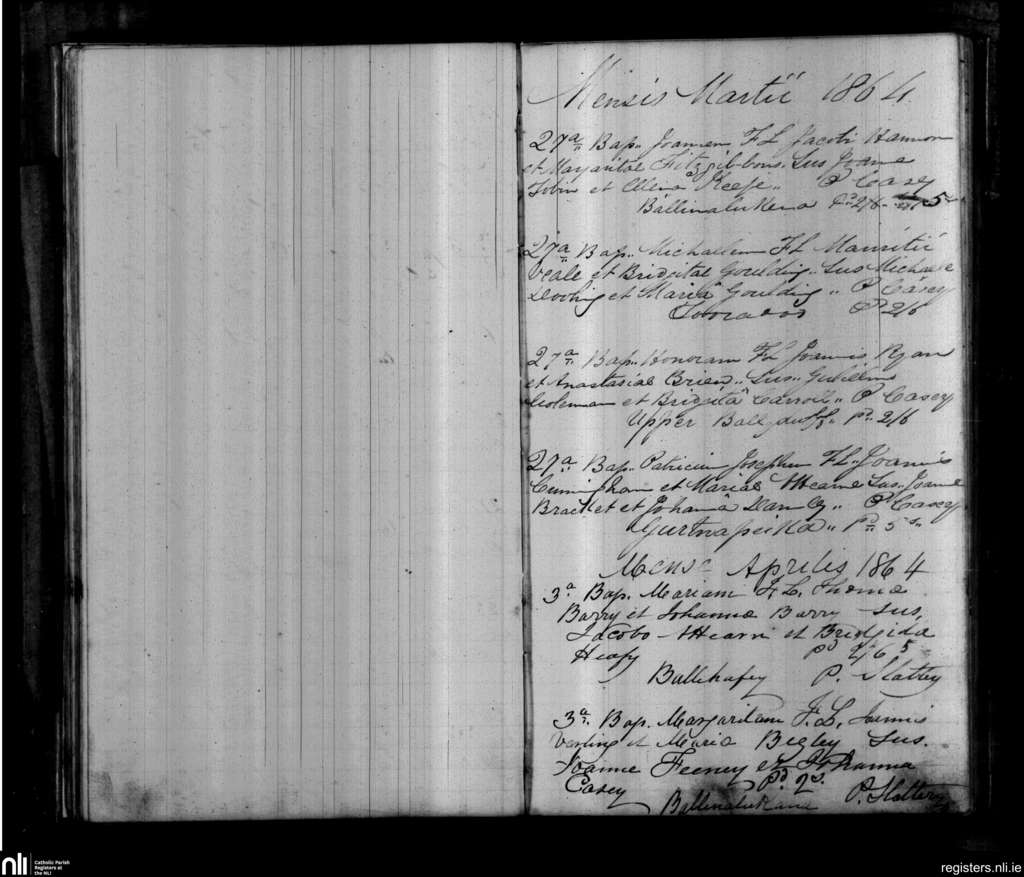 Mensis Martii 1864.
27a Bap. Joannem F L Jacobi Hannon
et Margaritae Fitzgibbons. Sus Joane
Tobin et Ellena Keefe. P Casey
Ballinaluckena Pd 2/6 5s
27a Bap. Michaelem FL Mauritii
Veale et Brigitae Goulding. Sus Michaele
et Maria Goulding. P Casey
P 2/6
27a Bap. Honoram FL Joannis Ryan
et Anastasiae Brien. Sus. Gulielmo
Coleman et Brigita Carroll. P Casey
Upper Ballyduff Pd 2/6
27a Bap. Patricium Josephum FL Joannis
Cunningham et Mariae Hearne Sus. Joanne
Bracket et Johana P Casey
Gurtnapeika. Pd 5s
Mense Aprilis 1864
3a Bap. Mariam F. L. Thomae
Barry et Johanna Barry Sus.
Jacobo Ahearn et Bridgida
Heafy Pd 2/6 5
Ballihafey P. Slattery
3a. Bap. Margaritam F. L. Jannis
Verling et Maria Begley Sus.
Joanne Feeney et Johanna
Casey Pd 2s.
Ballinalukana P. Slattery
nli
Catholic Parish
Registers at
the NLI
registers.nli.ie